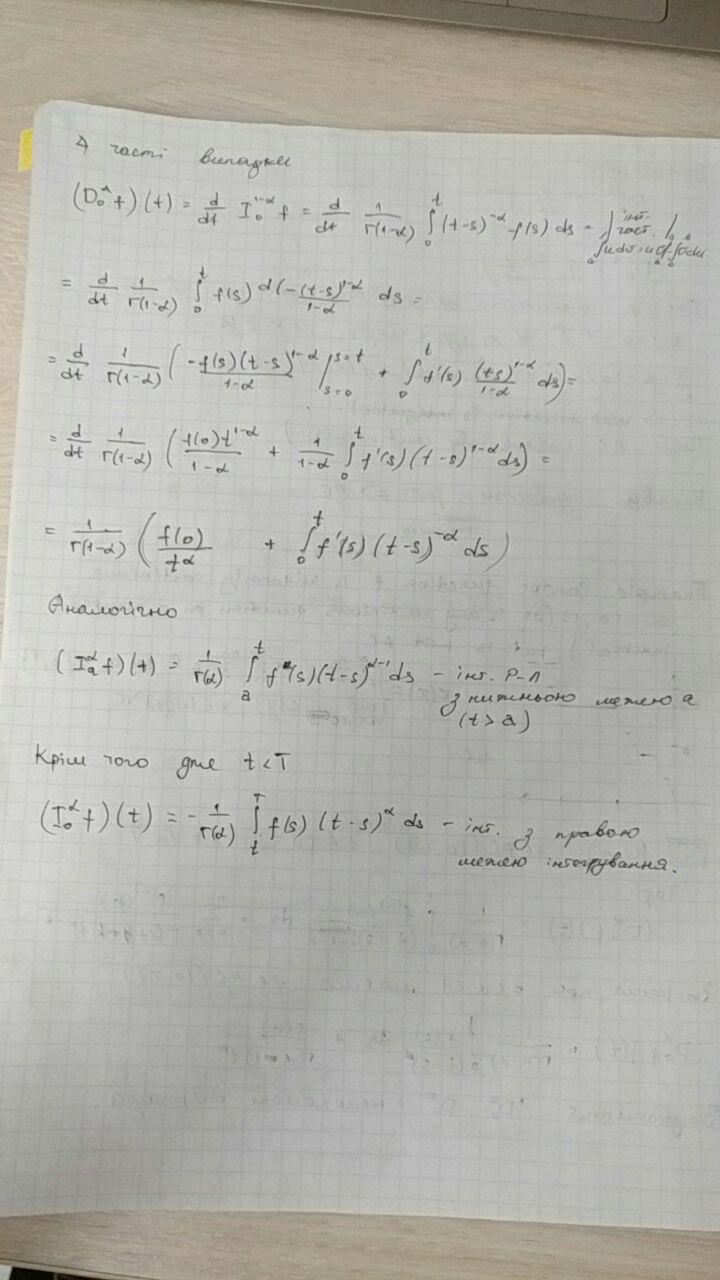 часті випадки
(D₀^α f)(t) = d/dt I₀^{1-α} f = d/dt 1/Γ(1-α) ∫₀^t (t-s)^{-α} f(s) ds = | інт. част. | ∫udv = uv - ∫vdu
= d/dt 1/Γ(1-α) ∫₀^t f(s) d(-(t-s)^{1-α}/(1-α) ds =
= d/dt 1/Γ(1-α) (-f(s)(t-s)^{1-α}/(1-α) |_{s=0}^{s=t} + ∫₀^t f'(s) (ts)^{1-α}/(1-α) ds) =
= d/dt 1/Γ(1-α) (f(0)t^{1-α}/(1-α) + 1/(1-α) ∫₀^t f'(s)(t-s)^{1-α} ds) =
= 1/Γ(1-α) (f(0)/t^α + ∫₀^t f'(s)(t-s)^{-α} ds)
Аналогічно
(I_a^α f)(t) = 1/Γ(α) ∫_a^t f(s)(t-s)^{α-1} ds - інт. Р-Л
з нижньою межею a
(t > a)
Крім того для t < T
(I₀^α f)(t) = - 1/Γ(α) ∫_t^T f(s) (t-s)^α ds - інт. з правою
межею інтегрування.